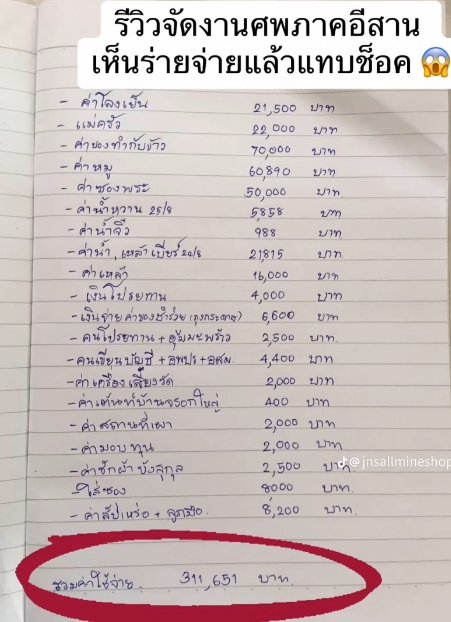 รีวิวจัดงานศพภาคอีสาน
เห็นร่ายจ่ายแล้วแทบช็อค 😱
- ค่าโลงเย็น 21,500 บาท
- แม่ครัว 22,000 บาท
- ค่าของทำกับข้าว 70,000 บาท
- ค่าหมู 60,890 บาท
- ค่าซองพระ 50,000 บาท
- ค่าน้ำหวาน 25/8 5,858 บาท
- ค่าน้ำจิ้ว 988 บาท
- ค่าน้ำ, เหล้า เบียร์ 24/8 21,815 บาท
- ค่าเหล้า 16,000 บาท
- เงินโปรยทาน 4,000 บาท
- เงินจ่ายค่าของชำร่วย (ถุงกระดาษ) 6,600 บาท
- คนโปรยทาน + อุ้มมะพร้าว 2,500 บาท
- คนเขียนบัญชี + อพปร + อสม. 4,400 บาท
- ค่าเครื่องเสียงวัด 2,000 บาท
- ค่าเต็นท์บ้านจรอกใหญ่ 400 บาท
- ค่าสถานที่เผา 2,000 บาท
- ค่ามอบทุน 2,000 บาท
- ค่าชักผ้าบังสุกุล 2,500 บาท
- ใส่ซอง 8000 บาท
- ค่าสัปเหร่อ + ลูกมือ 8,200 บาท
@jnsallmineshop
รวมค่าใช้จ่าย 311,651 บาท